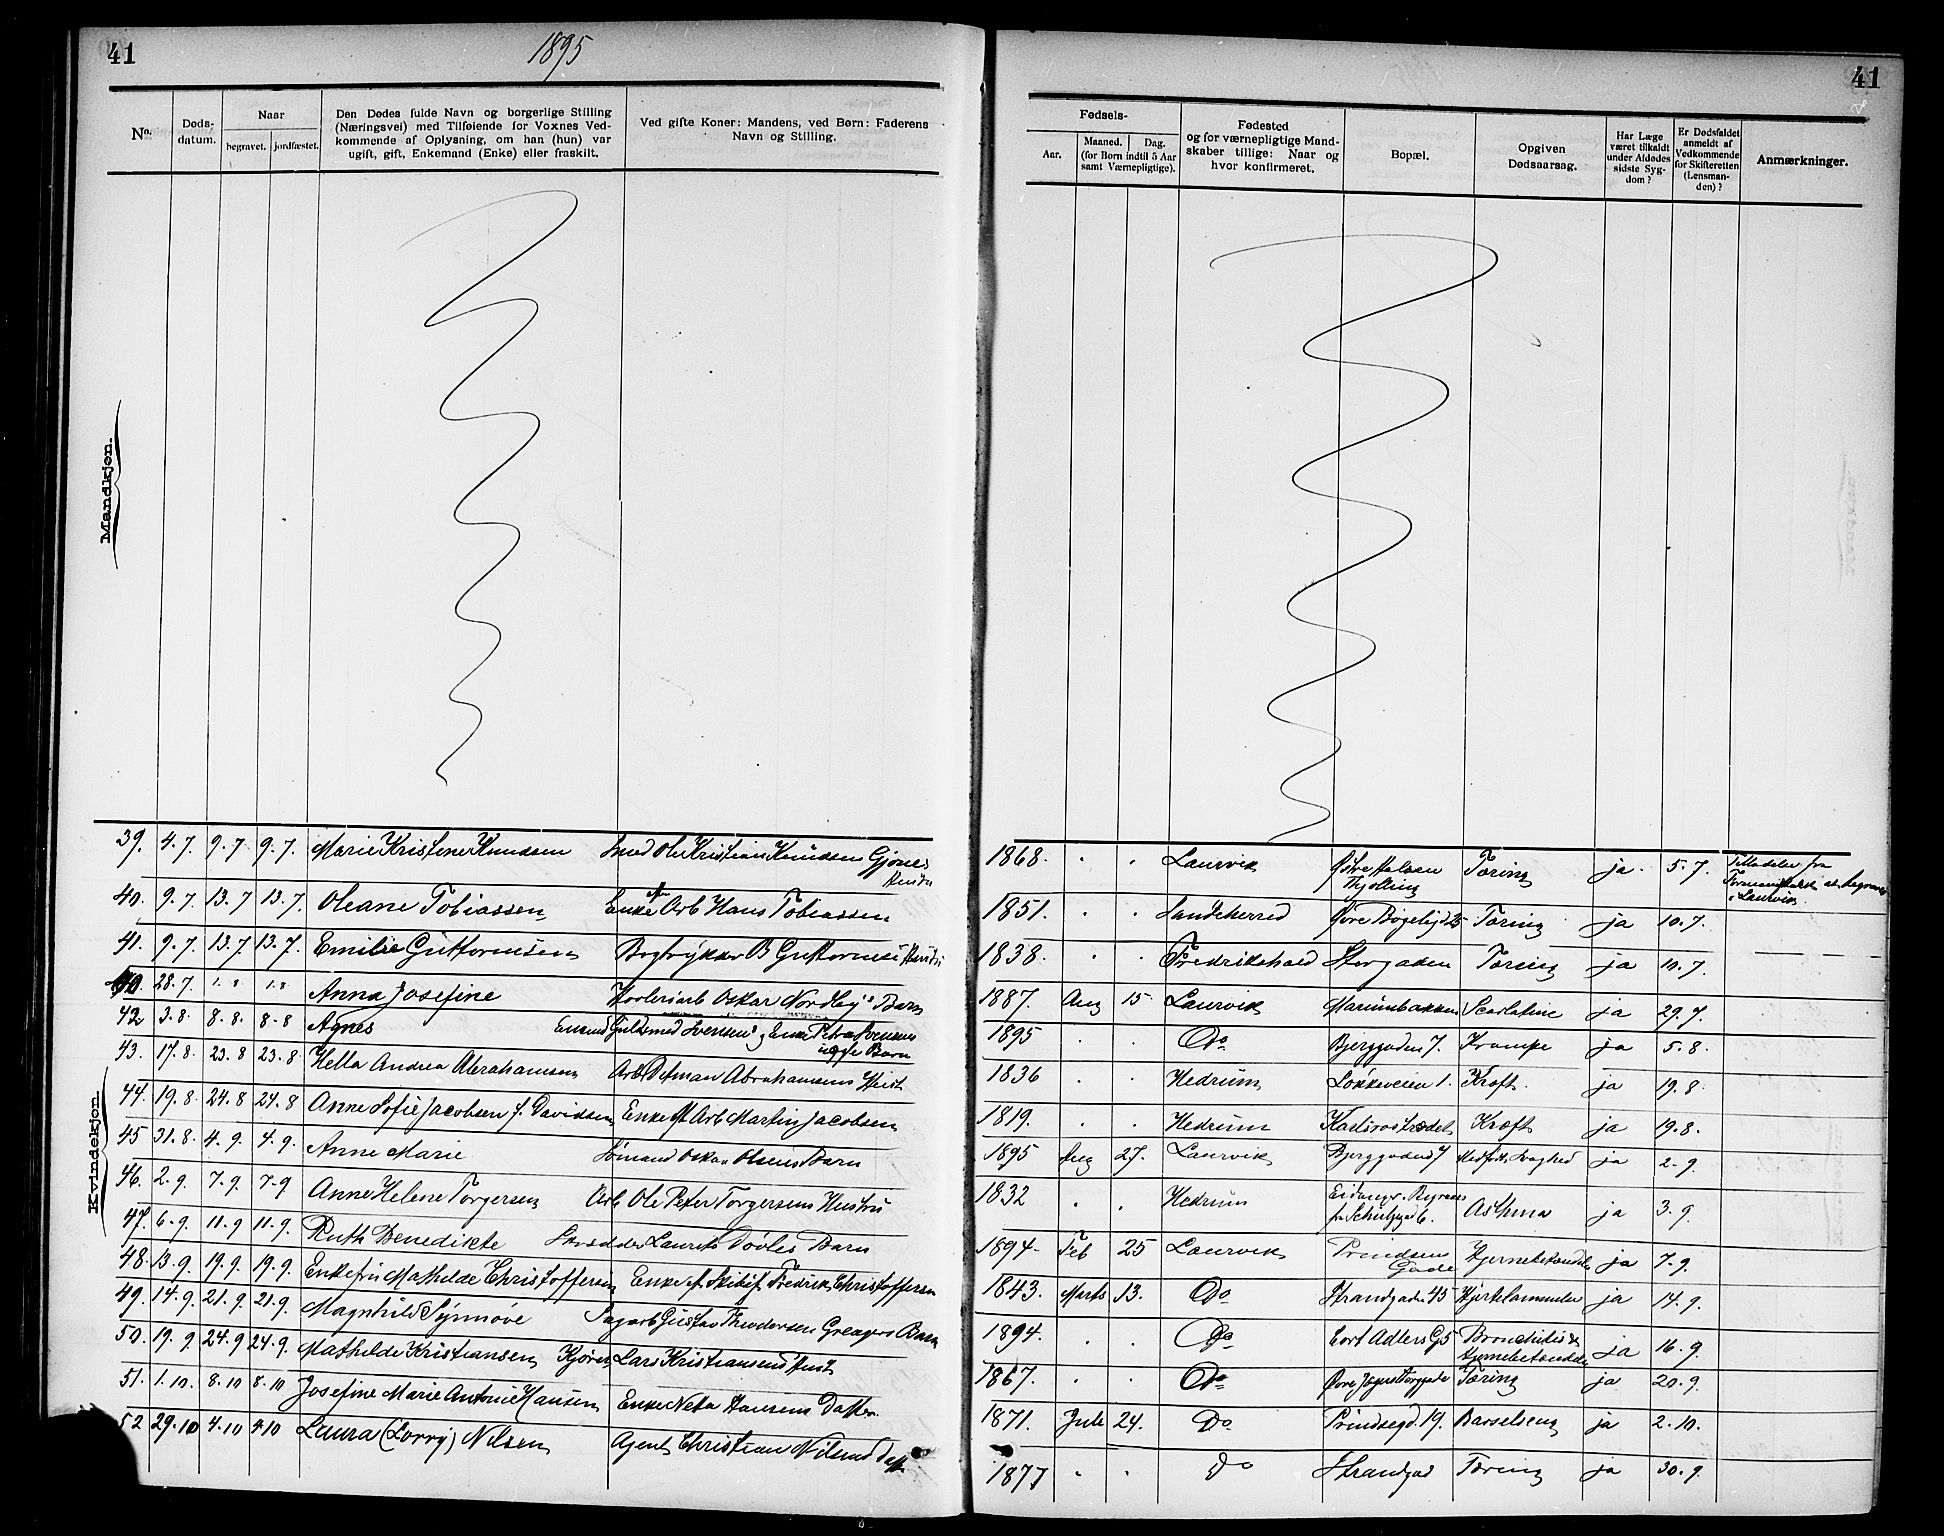 41
1895
41
No.
Døds-
datum.
Naar
begravet.
jordfæstet.
Den Dødes fulde Navn og borgerlige Stilling
(Næringsvei) med Tilføiende for Voxnes Ved-
kommende af Oplysning, om han (hun) var
ugift, gift, Enkemand (Enke) eller fraskilt.
Ved gifte Koner: Mandens, ved Børn: Faderens
Navn og Stilling.
Fødsels-
Aar.
Maaned.
Dag.
(for Børn indtil 5 Aar
samt Værnepligtige).
Fødested
og for værnepligtige Mand-
skaber tillige: Naar og
hvor konfirmeret.
Bopæl.
Opgiven
Dødsaarsag.
Har Læge
været tilkaldt
under Afdødes
sidste Syg-
dom?
Er Dødsfaldet
anmeldt af
Vedkommende
for Skifteretten
(Lensman-
den)?
Anmærkninger.
Mandkjøn.
Kvindekjøn.
39. 4.7. 9.7 9.7. Marie Kristine Knudsen Smed Ole Kristian Knudsen Gjønes Hustru 1868. Laurvik Østre Halsen Thjølling Tæring ja. 5.7. at begraves i Laurvik
40. 9.7 13.7 13.7. Oleane Tobiassen Enke Arb Hans Tobiassen 1851. Sandeherred Øvre Bøgeligd 25 Tæring ja 10.7.
41. 9.7 13.7 13.7. Emilie Guttormsen Bogtrykker B Guttormsens Hustru 1838. Fredrikshald Storgaden Tæring ja 10.7.
28.7. 1.8 1.8 Anna Josefine Oskar Nordby's Barn 1887. Aug 15 Laurvik Scarlatine ja 29.7.
42 3.8. 8.8. 8.8 Agnes Guldsmed Svensens Enke Petra Svensens uægte Barn 1895 Do Bjerggaden 7. Krampe ja 5.8.
43. 17.8. 23.8 23.8 Hella Andrea Abrahamsen Arb Detman Abrahamsens Hust. 1836 Hedrum Løkkeveien 1. Kræft. ja 19.8.
44. 19.8. 24.8 24.8 Anne Sofie Jacobsen f. Davidsen Enke ef Arb Martin Jacobsen 1819. Hedrum Karlsrostrædet Kræft ja 19.8.
45 31.8. 4.9. 4.9. Anne Marie Sømand Oskar Olsens Barn 1895 Aug 27. Laurvik Bjerggaden 7 Medfødt Svaghed ja 2.9.
46. 2.9. 7.9. 7.9 Anne Helene Torgersen Arb Ole Peter Torgersens Hustru 1832 Hedrum Asthma ja 3.9.
47. 6.9. 11.9 11.9. Ruth Benedikte Skrædder Laurits Døvles Barn 1894. Feb 25 Laurvik Prindsens Gade Hjernebetændelse ja 7.9.
48. 13.9. 19.9. 19.9. Enkefru Mathilde Christoffersen Enke ef Skibsf. Fredrik Christoffersen 1843. Marts 13. Do Strandgaden 45 Hjertelammelse ja 14.9.
49. 14.9. 21.9. 21.9. Magnhild Synnøve Sagarb Gustav Theodorsen Greagers Barn 1894. Do Cort Adlers G 5 Bronchitis & Hjernebetændelse ja 16.9.
50. 19.9 24.9 24.9. Mathilde Kristiansen Kjører Lars Kristiansens Hust 1867. Do Tæring ja 20.9.
51. 1.10. 8.10 8.10 Josefine Marie Antonie Hansen Enke Neta Hansens Datter. 1871. Juli 24. Do Prindsegd. 19. Barselseng ja 2.10.
52 29.10 4.10 4.10 Laura (Lorry) Nilsen Agent Christian Nilsens datt. 1877 Do Strandgad Tæring ja 30.9.